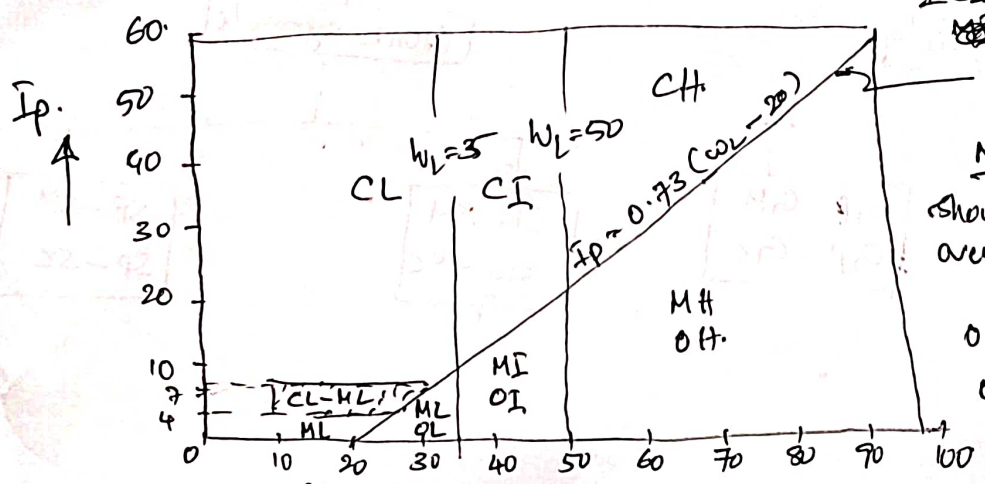 60.
Ip.
50
40
30
20
10
7
4
0
CH.
WL=35
WL=50
CL
CI
Ip = 0.73 (WL - 20)
MH
OH.
MI
OI
CL-ML
ML
OL
ML
10
20
30
40
50
60
70
80
90
100